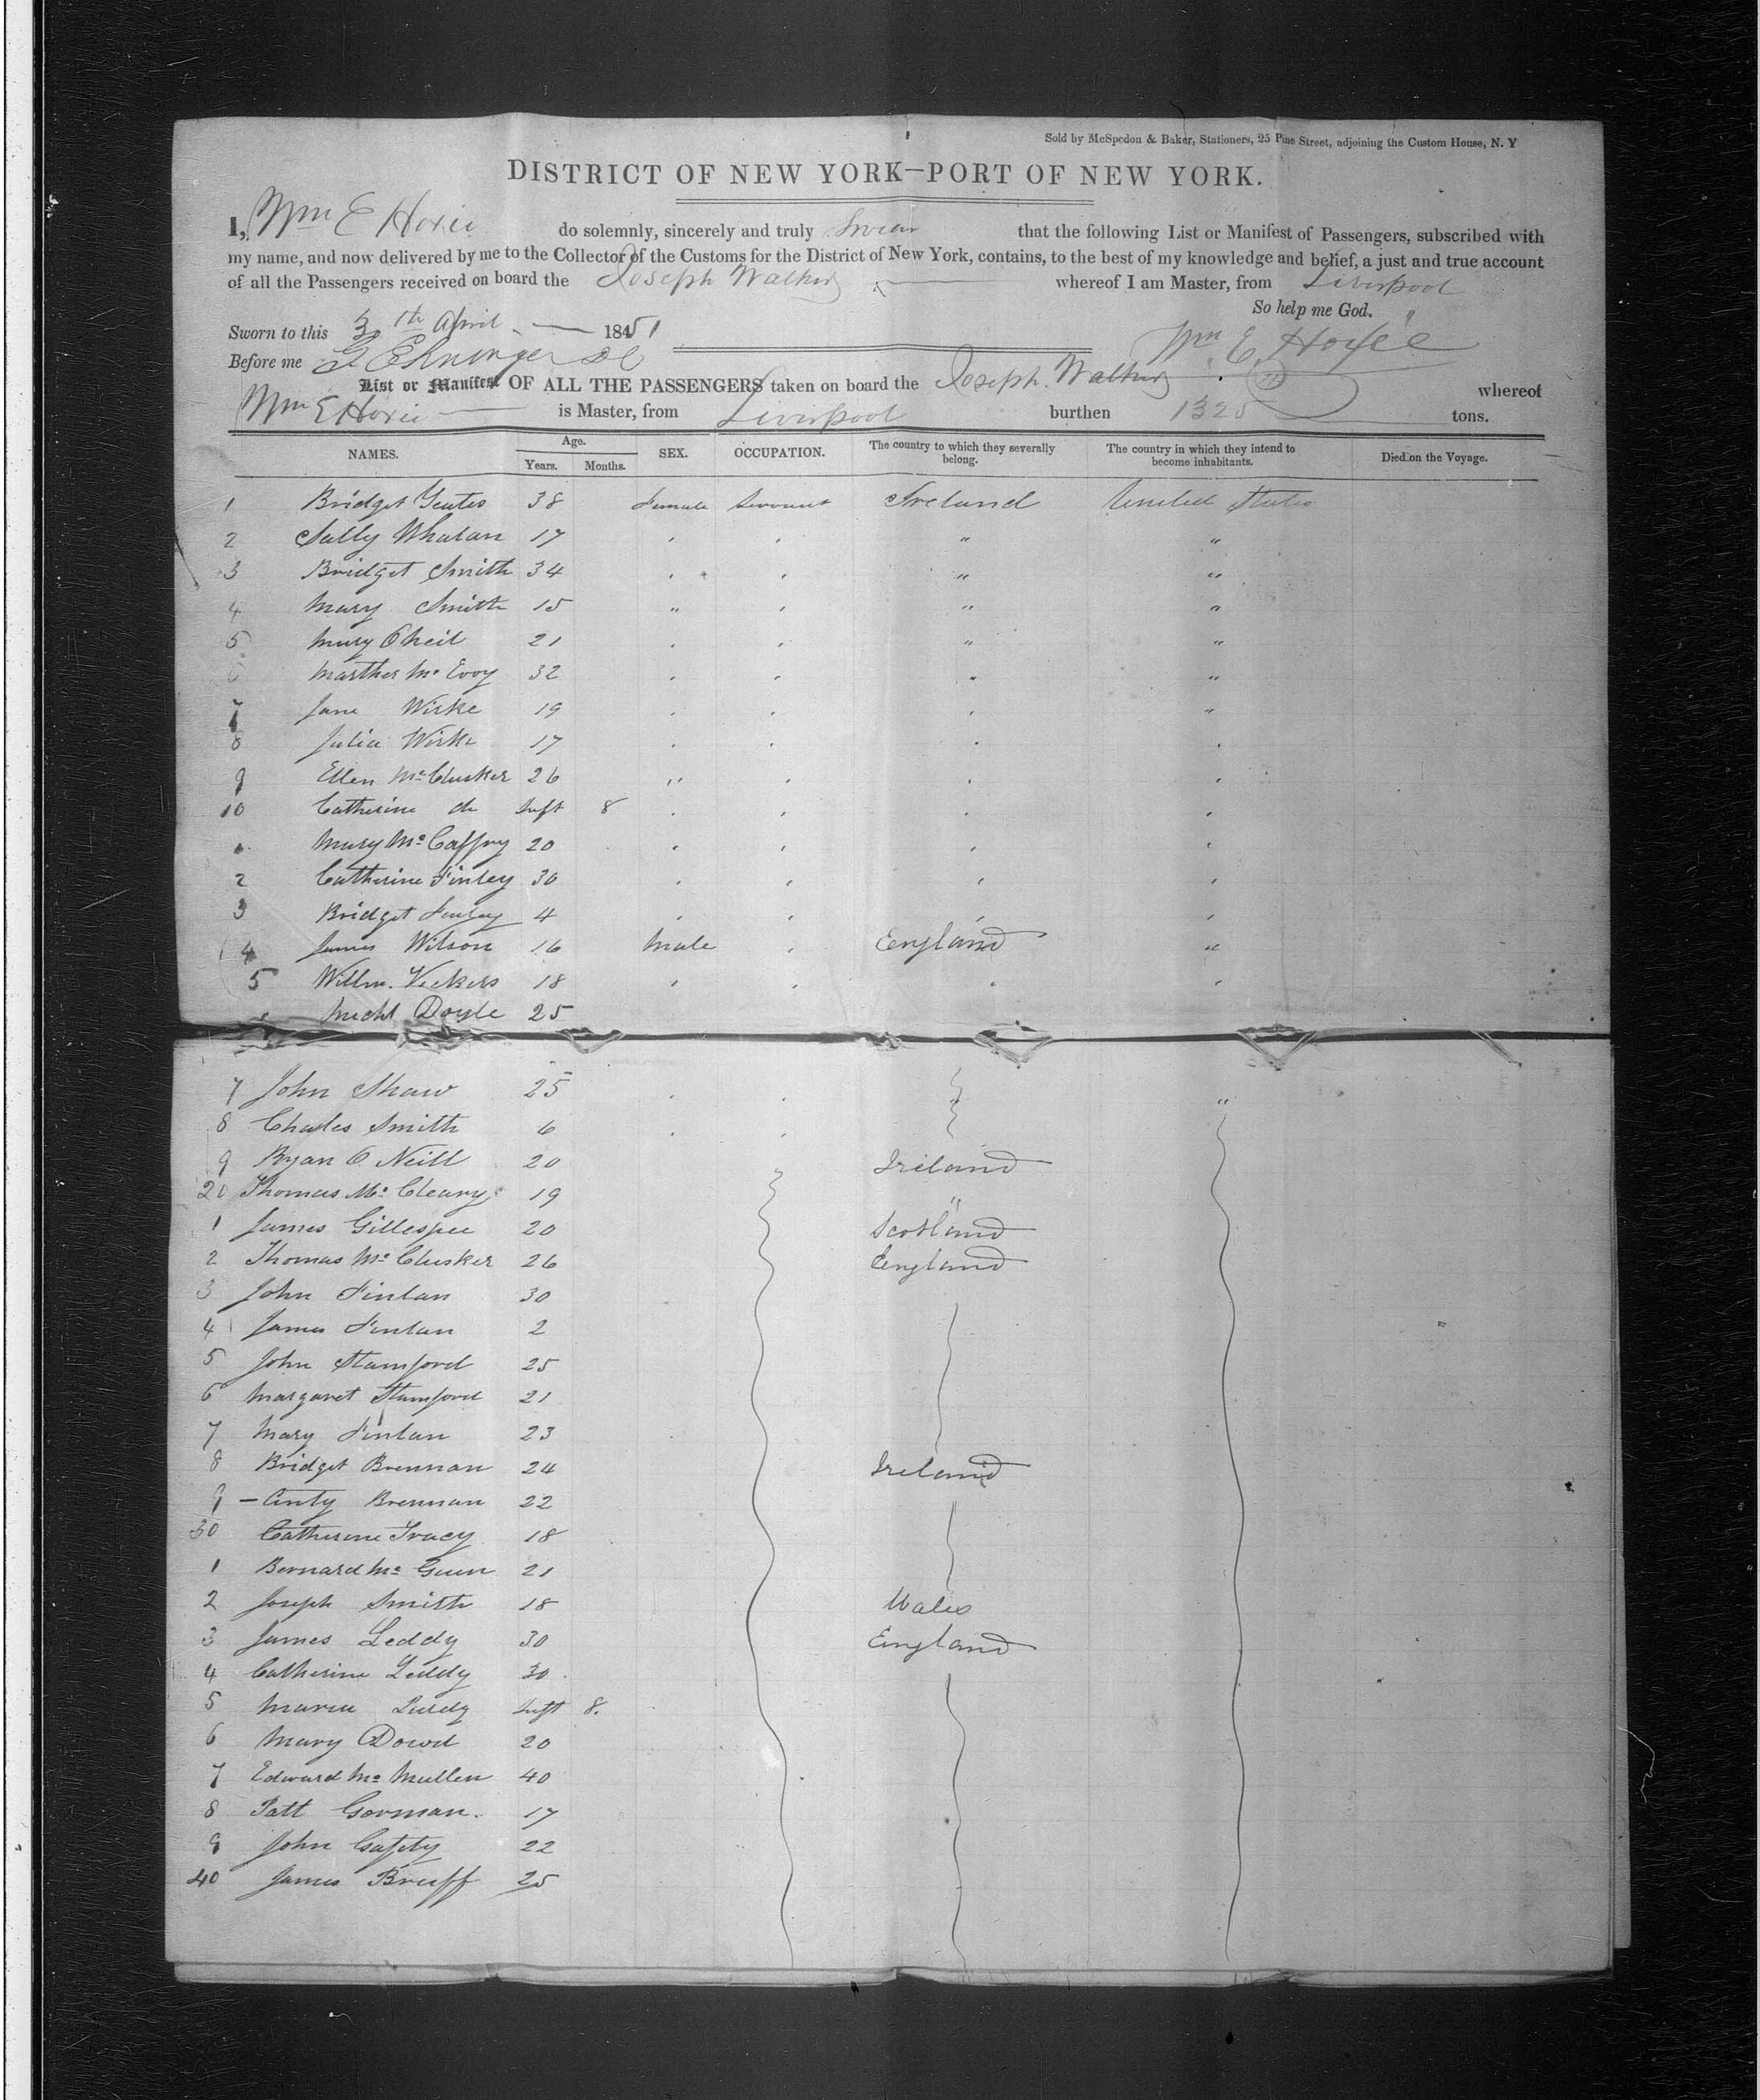 Sold by McSpedon & Baker, Stationers, 25 Pine Street, adjoining the Custom House, N. Y
DISTRICT OF NEW YORK—PORT OF NEW YORK.
I, Wm E Hoxie do solemnly, sincerely and truly swear that the following List or Manifest of Passengers, subscribed with
my name, and now delivered by me to the Collector of the Customs for the District of New York, contains, to the best of my knowledge and belief, a just and true account
of all the Passengers received on board the Joseph Walker whereof I am Master, from Liverpool
So help me God.
Sworn to this 3th April 1851
Before me Wm. E. Hoxie
List or Manifest OF ALL THE PASSENGERS taken on board the Joseph Walker whereof
Wm E Hoxie is Master, from Liverpool burthen 1325 tons.
NAMES. Age. Years. Months. SEX. OCCUPATION. The country to which they severally belong. The country in which they intend to become inhabitants. Died on the Voyage.
1 Bridget 38 Female Servant Ireland United States
2 Sally Whalan 17 " " " "
3 Bridget Smith 34 " " " "
4 Mary Smith 15 " " " "
5 Mary O Neil 21 " " " "
6 Marther Mc Evoy 32 " " " "
7 Jane Wirke 19 " " " "
8 Julia Wirke 17 " " " "
9 Ellen Mc Clusker 26 " " " "
10 Catherine do Inft 8 " " " "
Mary Mc Caffry 20 " " " "
2 Catherine Finley 30 " " " "
3 Bridget Finley 4 " " " "
4 James Wilson 16 Male " England "
5 Willm. Vickers 18 " " " "
Michl Doyle 25
7 John Shaw 25 " " " "
8 Charles Smith 6 " "
9 Bryan O Neill 20 Ireland
20 Thomas Mc Cleary 19 "
1 James Gillespee 20 Scotland
2 Thomas Mc Clusker 26 England
3 John Finlan 30
4 James Finlan 2
5 John Stamford 25
6 Margaret Stamford 21
7 Mary Finlan 23
8 Bridget Brennan 24 Ireland
9 Anty Brennan 22
30 Catherine Tracy 18
1 Bernard Mc Guin 21
2 Joseph Smith 18 Wales
3 James Leddy 30 England
4 Catherine Leddy 30
5 Maria Leddy Inft 8.
6 Mary Dowd 20
7 Edward Mc Mullen 40
8 Patt Gorman. 17
9 John Gafety 22
40 James Bruff 25